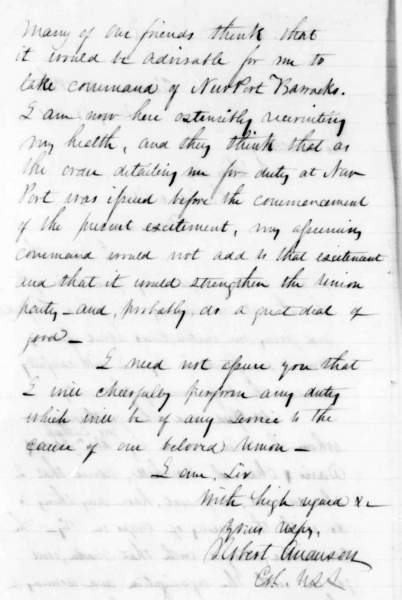 Many of our friends think that
it would be advisable for me to
take command of NewPort Barracks.
I am now here ostensibly recruiting
my health, and they think that as
the order detailing me for duty at New
Port was issued before the commencement
of the present excitement, my assuming
command would not add to that excitement
and that it would strengthen the Union
party - and, probably, do a great deal of
good -
I need not assure you that
I will cheerfully perform any duty
which will be of any service to the
cause of our beloved Union -
I am, Sir
With high regard &c
Yours respy,
Robert Anderson
Col. U.S.A